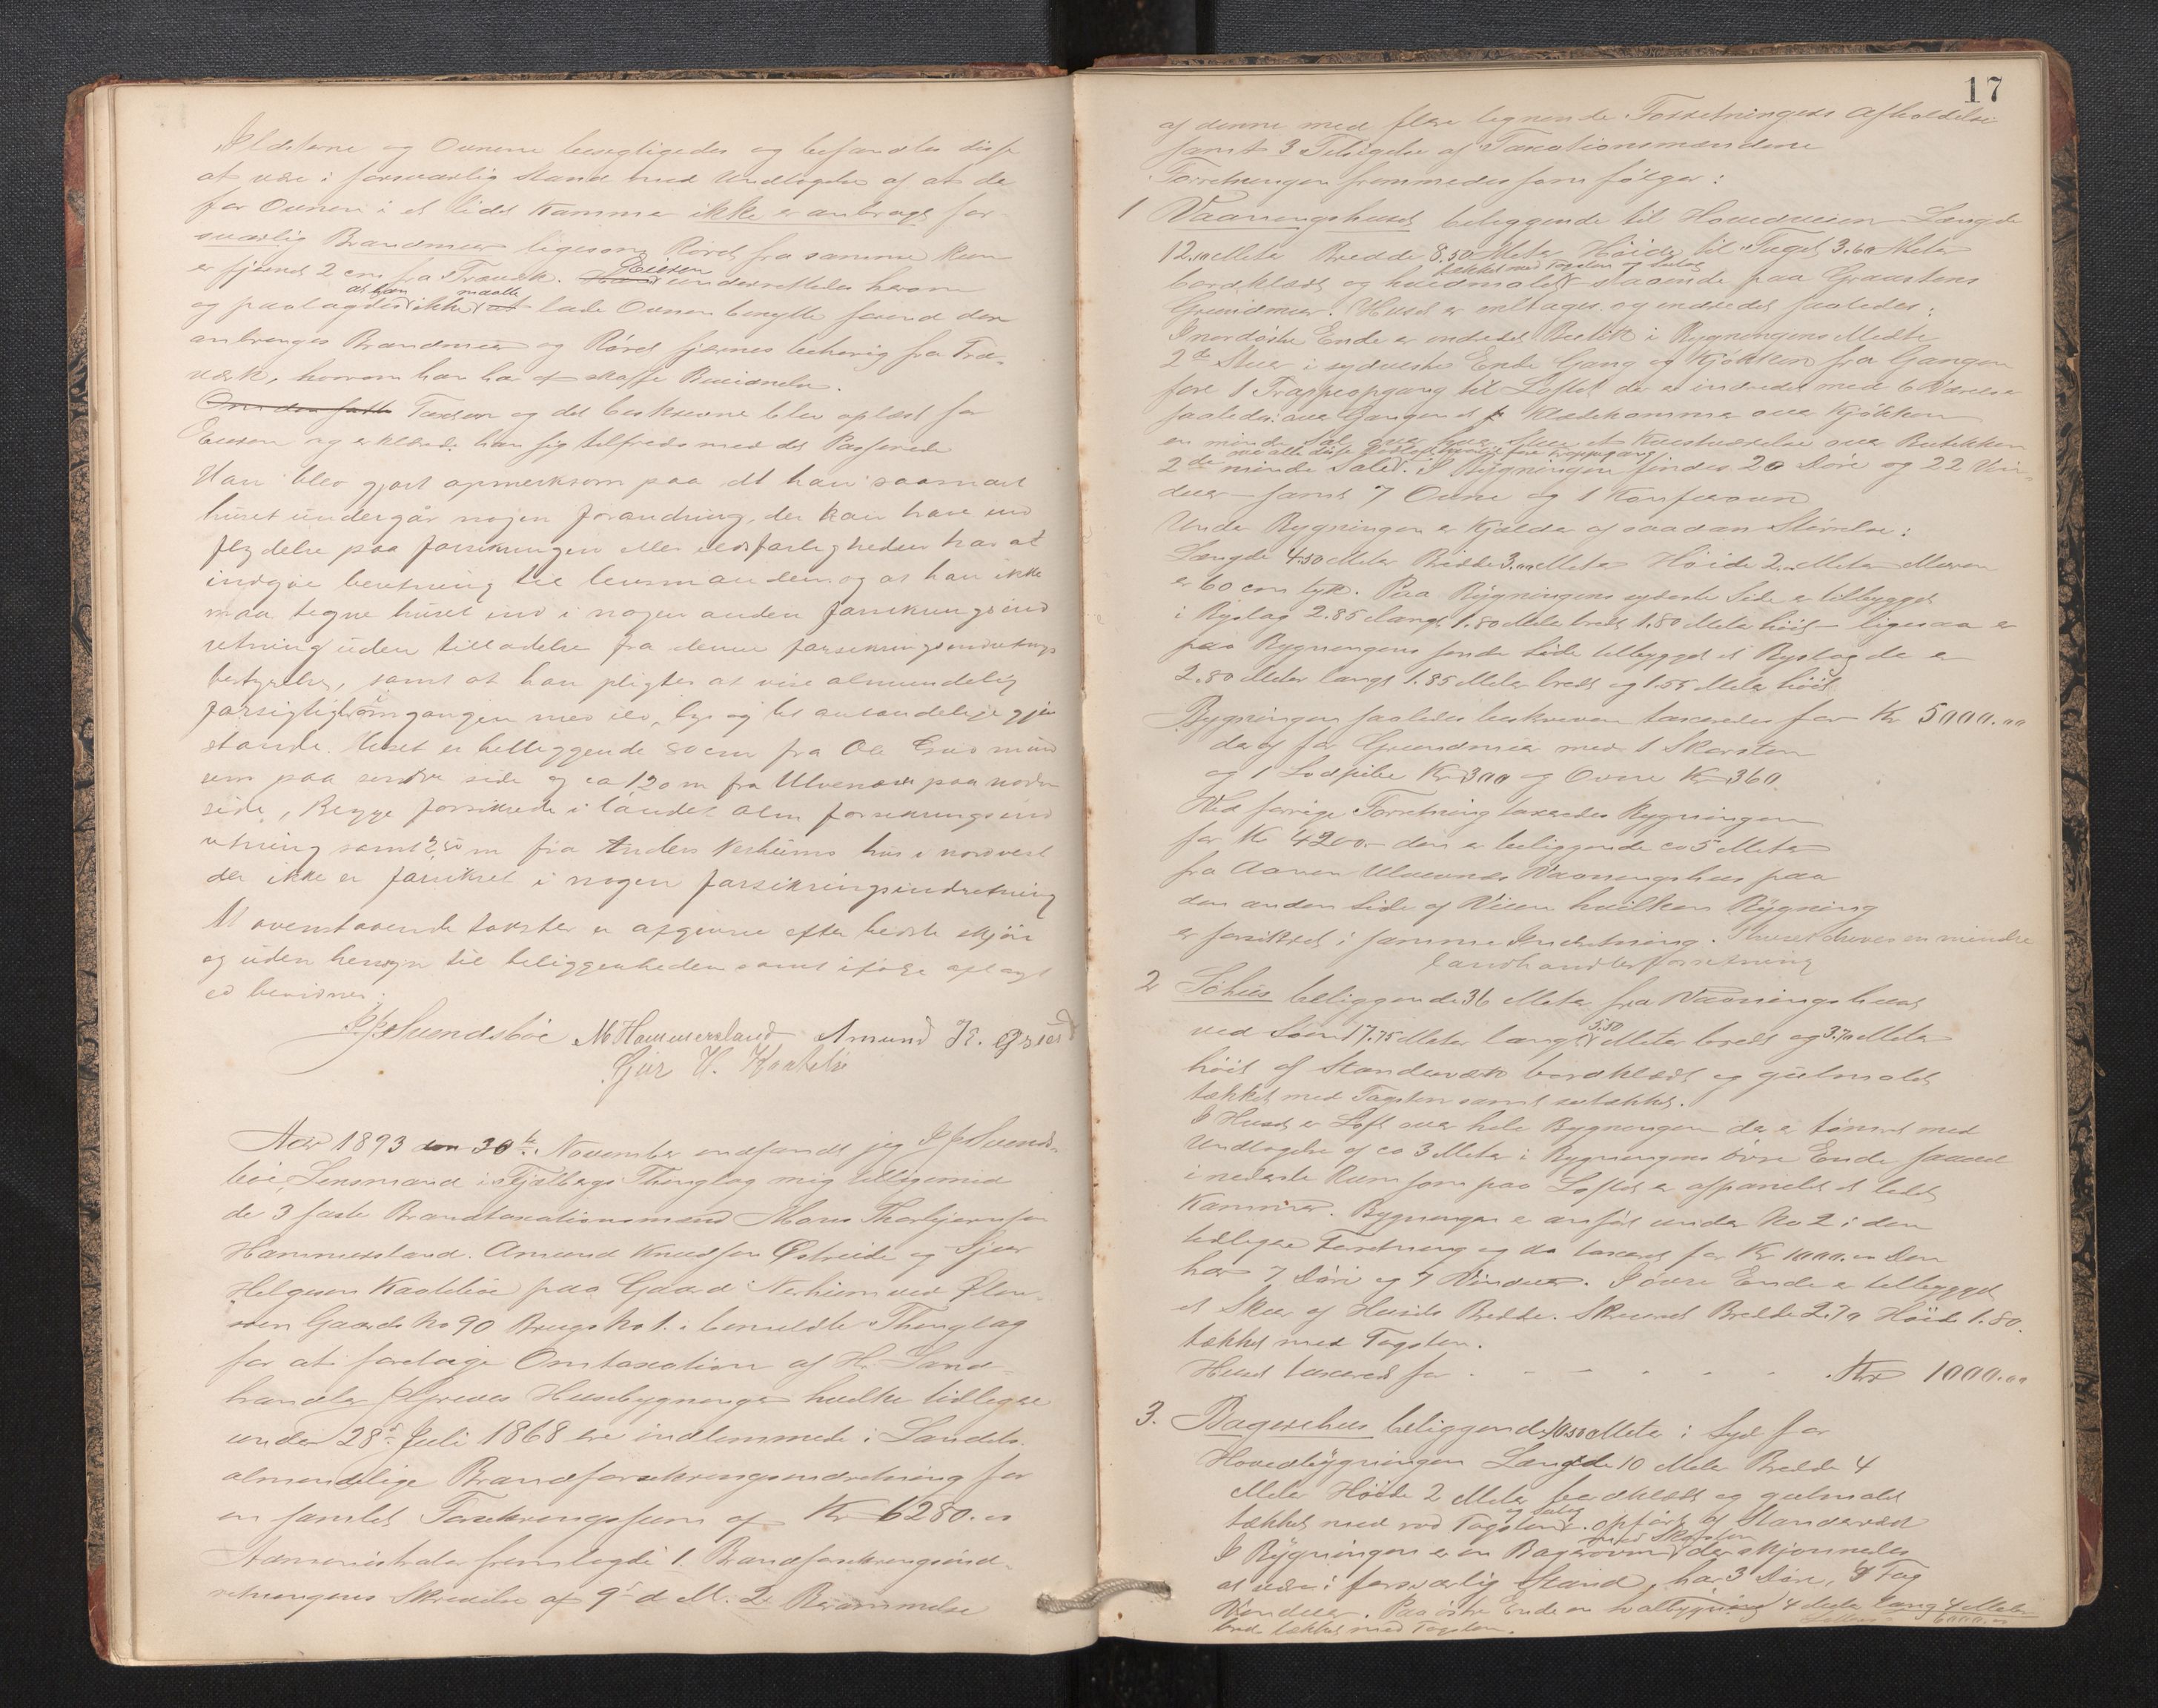 Ildsterne og Ovnene besegtigedes og befandtes disse
at være i forsvarlig Stand med Undtagelse af at de
for Ovnen i et lidet Kammer ikke er anbragt for
svarlig Brandmuur ligesom Røret fra samme kun
er fjernet 2 cm fra Trævæk. Eieren underrettedes herom
og paalagdes at han ikke maatte lade Ovnen benytte forend der
anbringes Brandmuur og Røret fjernes behørig fra Træ-
værk, hvorom han har at skaffe Bevidnelse.
Taxten og det beskrevne blev oplæst for
Eieren og erklærede han sig tilfreds med det Passerede
Han blev gjort opmerksom paa at han saasnart
huset undergår nogen forandring, der kan have ind
flydelse paa forsikringen eller ildsfarligheden har at
indgive beretning til lensmanden og at han ikke
maa tegne huset ind i nogen anden forsikringsind
retning uden tilladelse fra denne forsikringsindretnings
bestyrelse, samt at han pligter at vise almindelig
forsigtighed i omgangen med ild, lys og let antændelige gjen
stande. Huset er beliggende 80 cm fra Ole
sem paa søndre side og ca 120 m fra Ulvenæs paa nordre
side, Begge forsikrede i landet alm forsikringsind
retning samt 2,50 m fra Anders Nerheims hus i nordvest
der ikke er forsikret i nogen forsikringsindretning
At ovenstaaende takster er afgivne efter bedste skjøn
og uden hensyn til beliggenheden samt ifølge aflagt
ed bevidner:
Svendsbøe M Hammersland Amund K. Østreid
Gjer H. Kaatebø
Aar 1893 den 30te November indfandt jeg I J Svends-
bøe, Lensmand i Fjelbergs Thinglag mig tilligemed
de 3 faste Brandtaxationsmænd Mons Thorbjørnsen
Hammersland. Amund Knudsen Østreide og Gjer
Helgesen Kaatebøe paa Gaard Nerheim ved Ølen-
Gaards No 90 Brugs No 1. i bemeldte Thinglag
for at foretage Omtaxation af Hr. Land-
handler Husebygninger hvilke tidligere
under 28de Juli 1868 ere indlemmede i Landets
almindelige Brandforsikringsindretning for
en samlet Forsikringssum af Kr 6280.00
Administrator fremlagde 1. Brandforsikringsind-
retningens Skrivelse af 9de d. M. 2. Berammelse
17
af denne med flere lignende Forretningers Afholdelse
samt 3 Tilsigelse af Taxationsmændene
Forretningen fremmedes som følger:
1 Vaaningshuset beliggende til Hovedveien Længde
12.10 Meter Bredde 8.50 Meter Høide til Taget 3.60 Meter
bordklædt og hvidmalet tækket med Tagsten og staaende paa Graastens
Grundmur. Huset er enetages og indredet saaledes:
I nordøstre Ende er indredet Butik i Bygningens Midte
2de Stuer i sydvestre Ende Gang og Kjøkken fra Gangen
fører 1 Trappeopgang til Loftet der er indredet med 6 Værelser
saaledes: over Gangen et Klædekammer over Kjøkken
en mindre Sal over Stue et Kvistværelse over Butikken
2de mindre Sale. I Bygningen findes 20 Døre og 22 Vin-
duer samt 7 Ovne og 1 Komfurovn
Under Bygningen er Kjelder af saadan Størrelse:
Længde 4.50 Meter Bredde 3.00 Meter Høide 2 Meter Muren
er 60 cm tyk. Paa Bygningens sydøste Side er tilbygget
i Byslag 2.85 langt 1.80 Meter bredt 1.80 Meter høit ligesaa er
paa Bygningens søndre Side tilbygget et Byslag der er
2.80 Meter langt 1.85 Meter bredt og 1.55 Meter høit
Bygningen saaledes beskreven taxeredes for Kr 5000.00
deraf for Grundmur med 1 Skorsten
og 1 Lodpibe Kr 300 og Ovne Kr 360.
Ved forrige Forretning taxeredes Bygningen
for Kr 4200.- den er beliggende ca 5 Meter
fra Aamun Ulvenæs Vaaningshus paa
den anden Side af Veien hvilken Bygning
er forsikret i samme Indretning. I huset drives en mindre
landhandlerforretning
2 Søhus beliggende 36 Meter fra Vaaningshuset
ved Søen 17.75 Meter langt 5.50 Meter bredt og 3.70 Meter
høit af Standerværk bordklædt og gulmalet
tækket med Tagsten samt
I Huset er Loft over hele Bygningen der er tømret med
Undtagelse af ca 3 Meter i Bygningens øvre Ende saavel
i nederste Rum som paa Loftet er afpanelet et lidet
Kammer. Bygningen er anført under No 2 i den
tidligere Forretning og da taxeret for Kr 1000.00 Den
har 7 Døre og 7 Vinduer. I øvre Ende er tilbygget
et Skur af Husets Bredde. Skurets Bredde 2.70 Høide 1.80.
tækket med Tagsten.
Huset taxeret for - - - - - - Kr 1000.00
3. Bagerhus beliggende 10.50 Meter i Syd for
Hovedbygningen Længde 10 Meter Bredde 4
Meter Høide 2 Meter bordklædt og gulmalet
tækket med rød Tagsten opført af Standerværk
I Bygningen er en Bagerovn med Skorsten der skjønnedes
at være i forsvarlig Stand, har 3 Døre, 8 Fag
Vinduer. Paa østre Ende en tilbygning 4 Meter lang 4 Meter
bred tækket med Tagsten.
6000.00